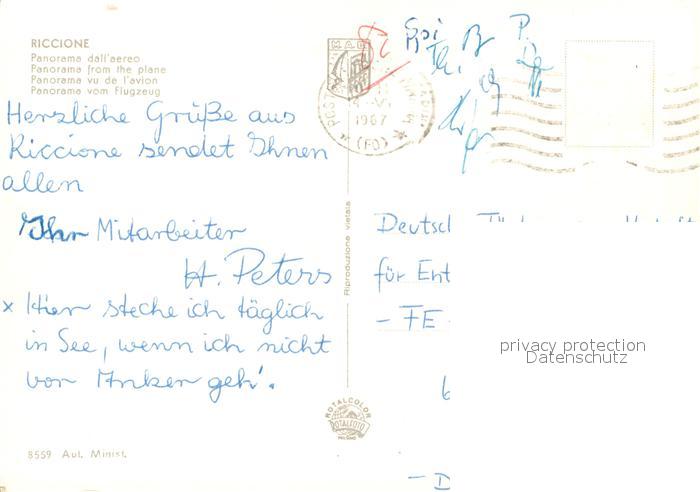 RICCIONE
Panorama dall'aereo
Panorama from the plane
Panorama vu de l'avion
Panorama vom Flugzeug
Herzliche Grüße aus
Riccione sendet Ihnen
allen
Ihr Mitarbeiter
H. Peters
x Hier steche ich täglich
in See, wenn ich nicht
vor Anker geh'.
8559 Aut. Minist.
Riproduzione vietata
ROTALCOLOR
ROTALFOTO
MILANO
1967
(FO)
Deutsch
für Ent
- FE
privacy protection
Datenschutz
- D